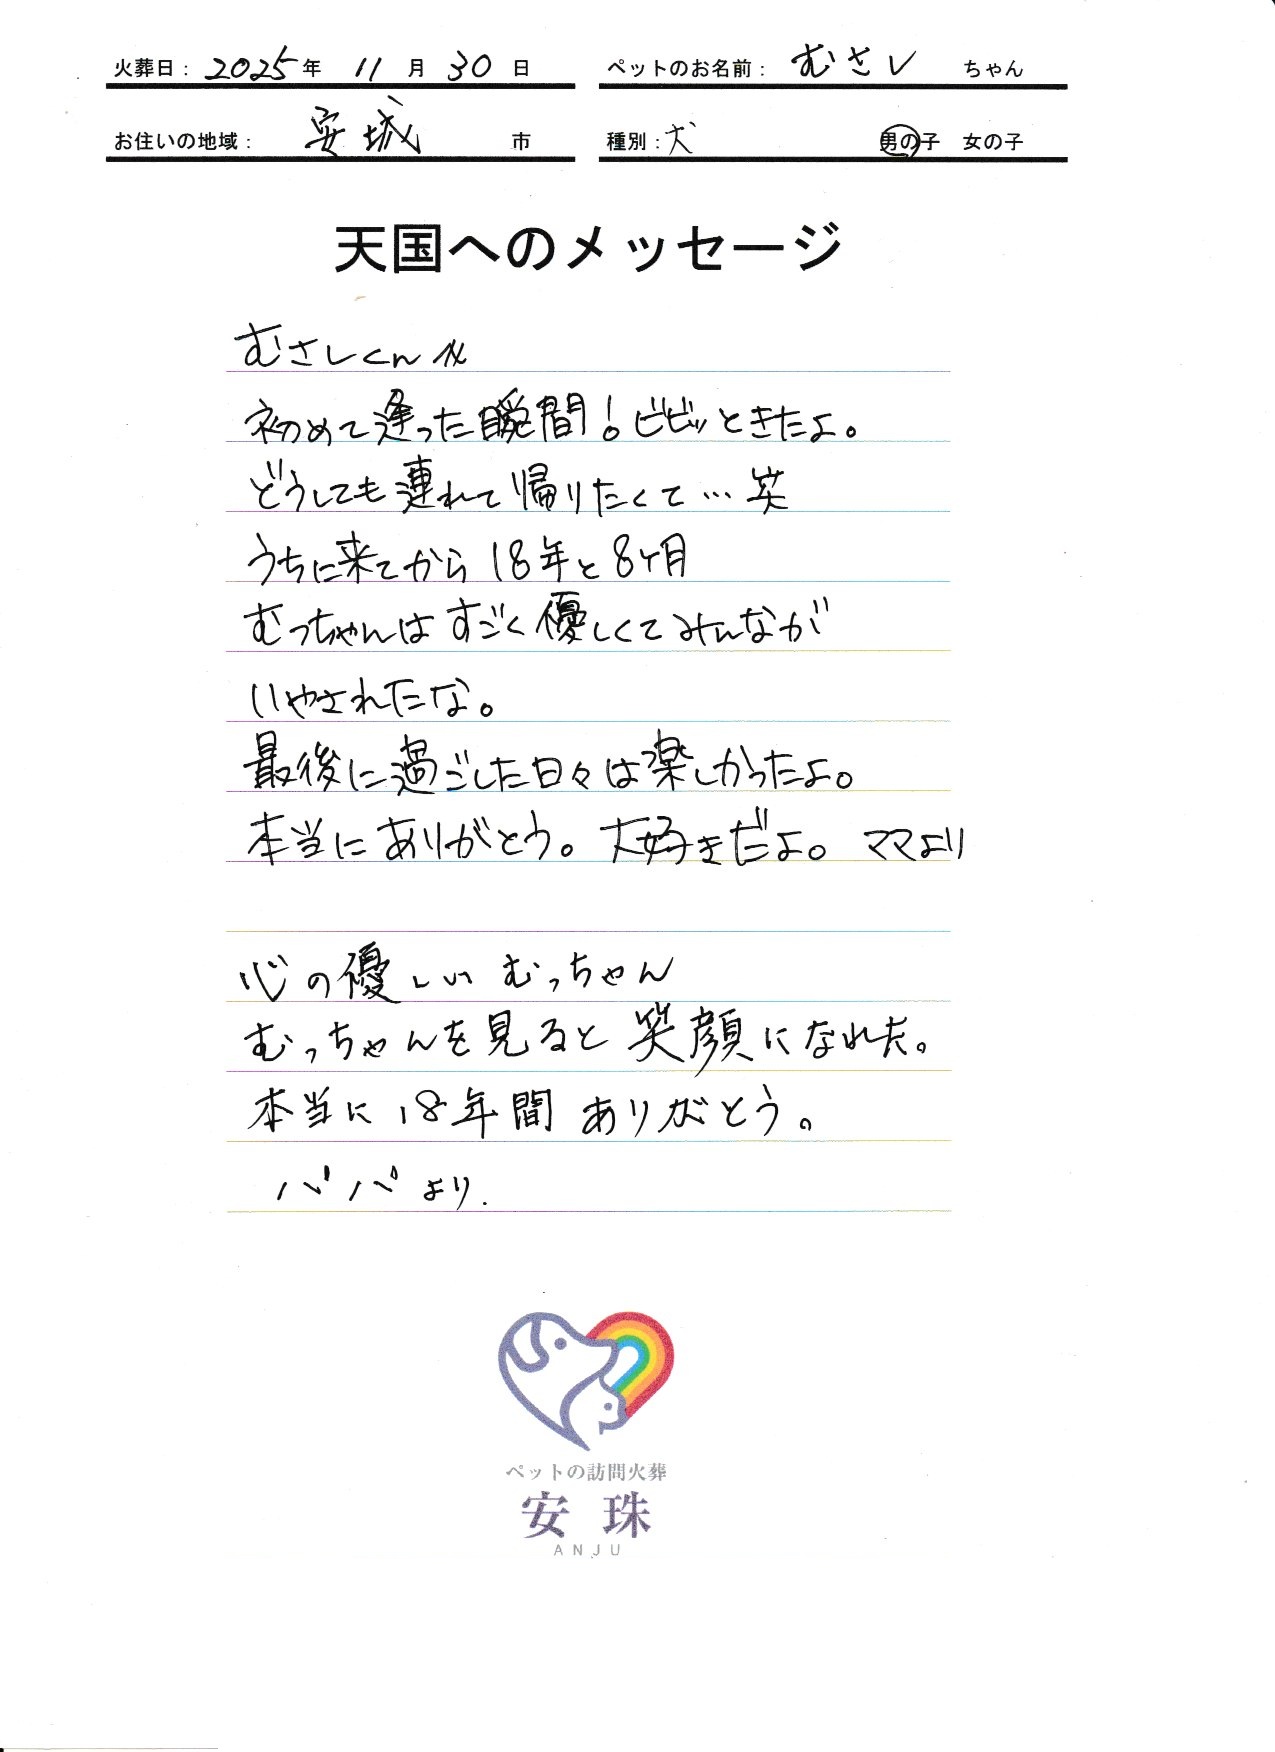 火葬日： 2025年 11月 30日
ペットのお名前： むさし ちゃん
お住いの地域： 安城 市
種別： 犬 男の子 女の子
天国へのメッセージ
むさしくんへ
初めて逢った瞬間！ビビッときたよ。
どうしても連れて帰りたくて…笑
うちに来てから18年と8ヶ月
むっちゃんはすごく優しくてみんなが
いやされたな。
最後に過ごした日々は楽しかったよ。
本当にありがとう。大好きだよ。 ママより
心の優しい むっちゃん
むっちゃんを見ると笑顔になれた。
本当に18年間 ありがとう。
パパより.
ペットの訪問火葬
安珠
ANJU